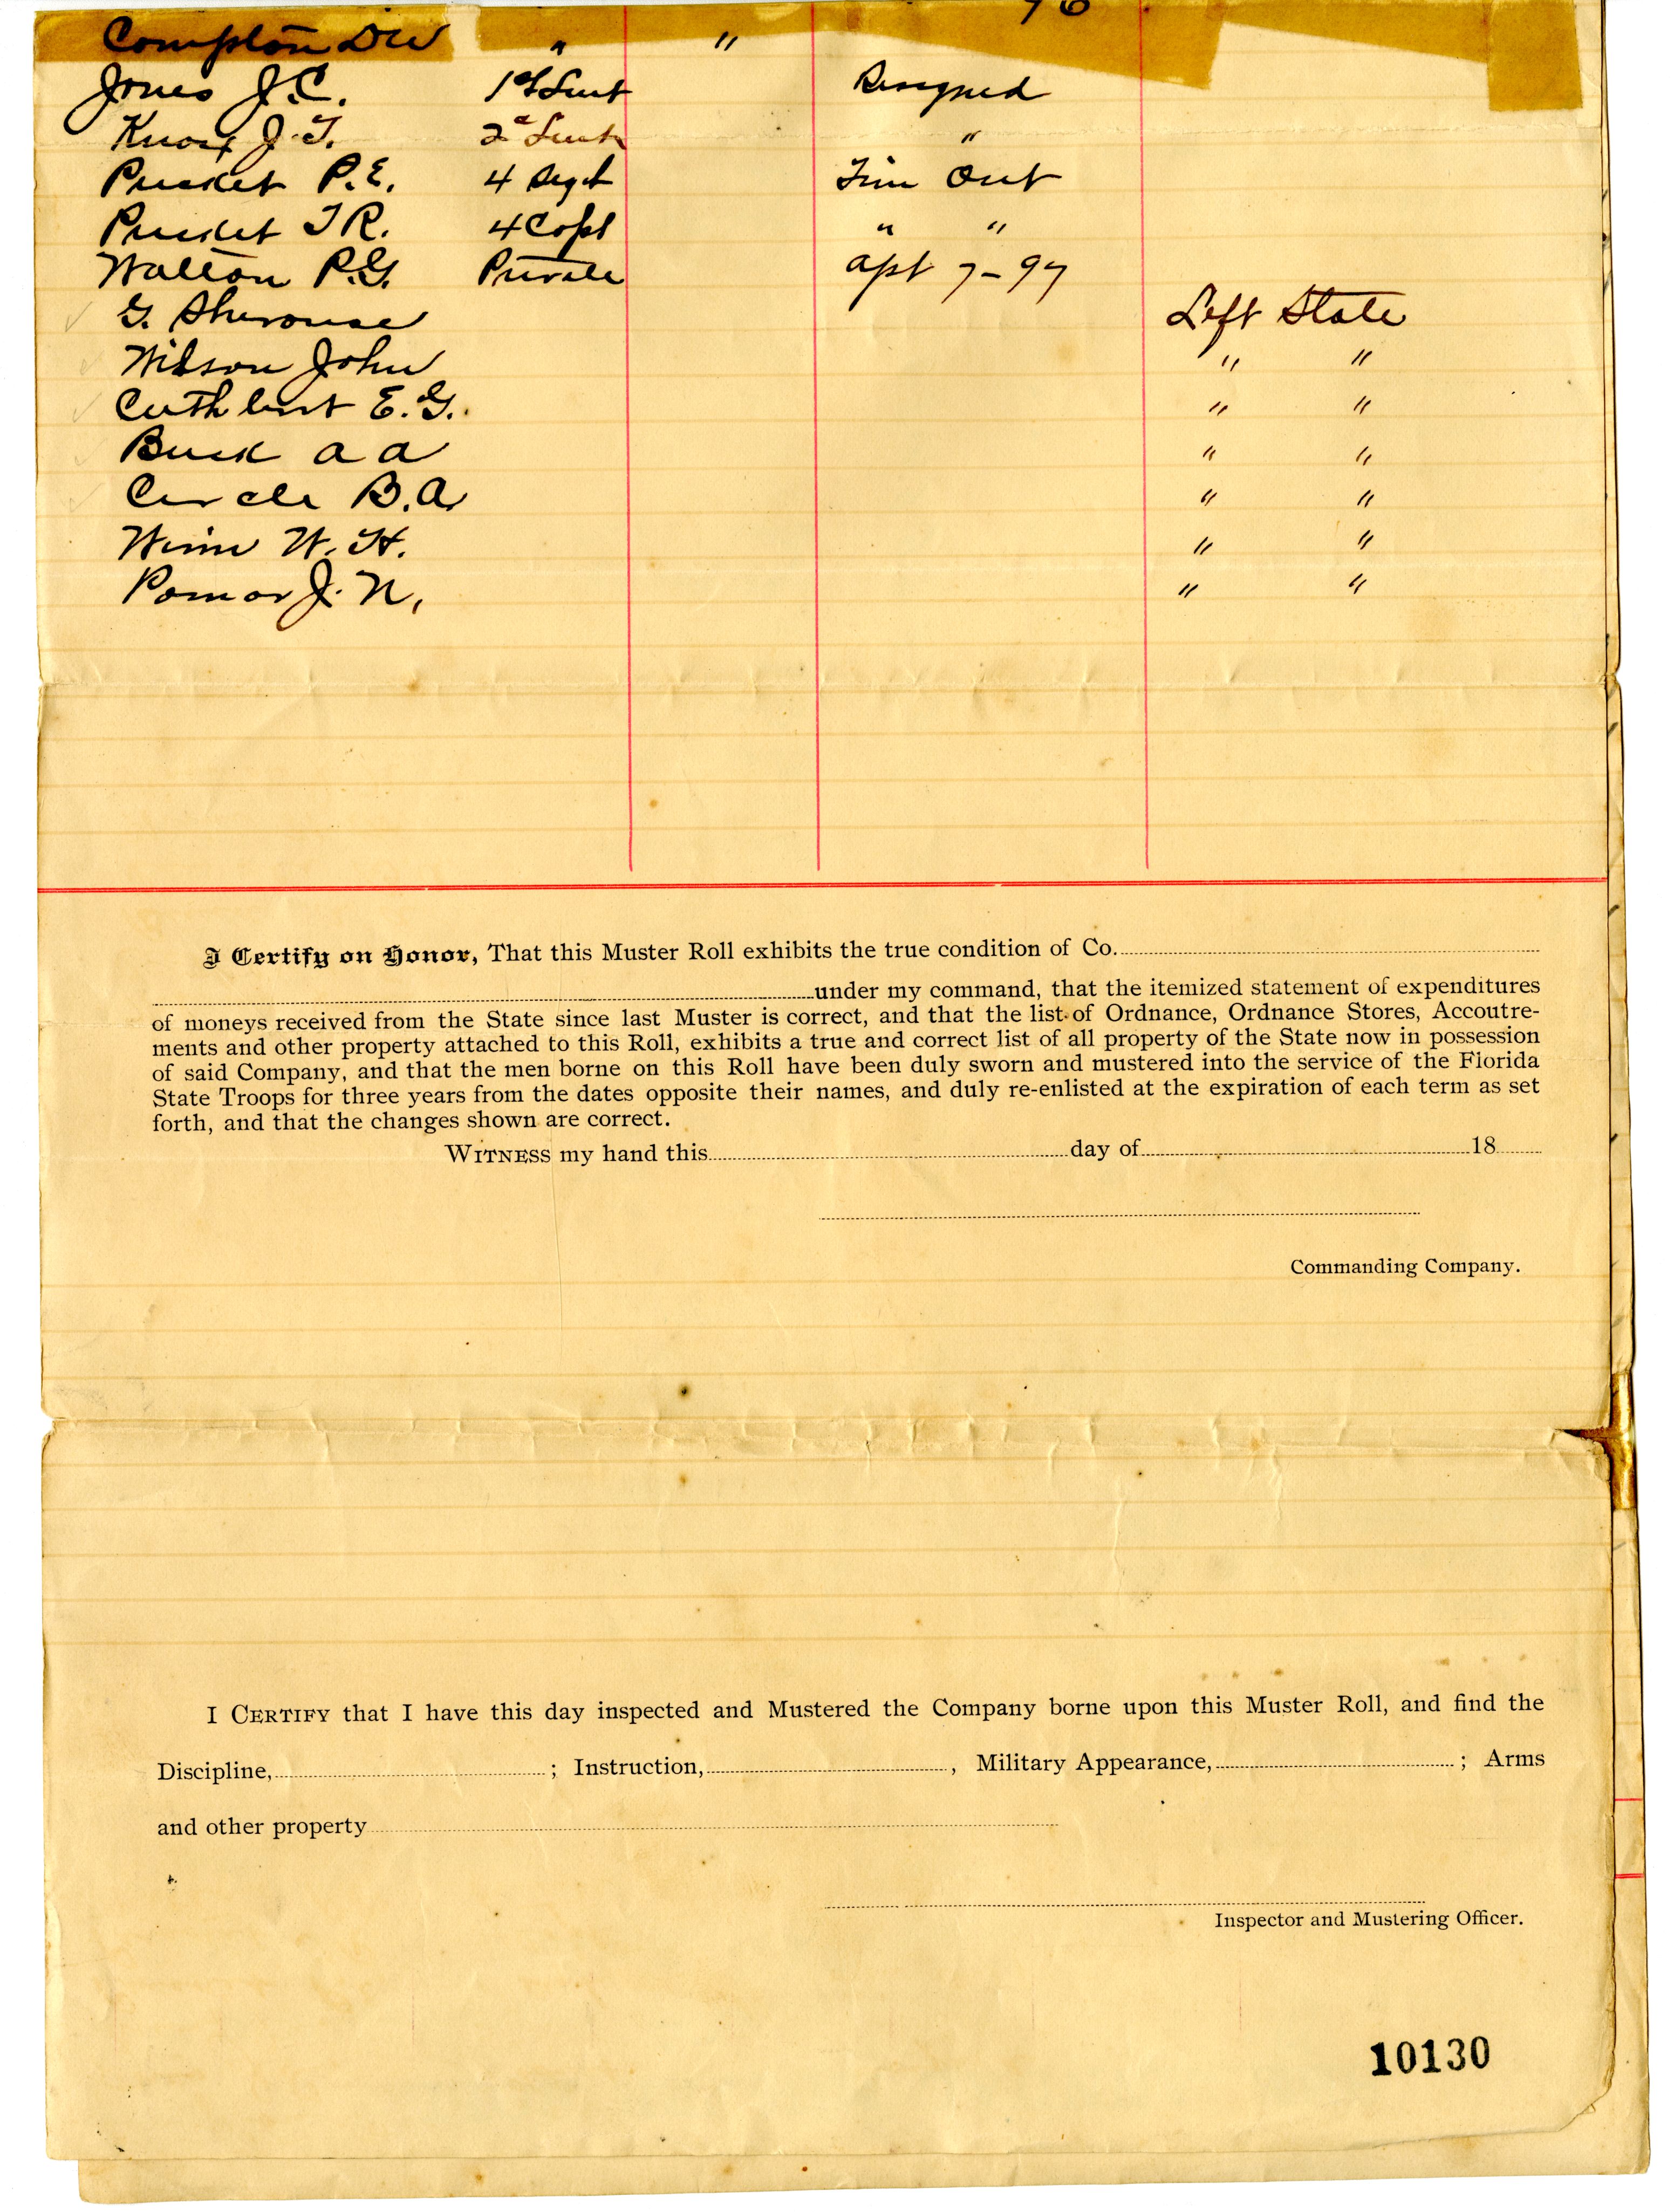 Compton DW " "
Jones J.C. 1st Lieut Resigned
Knox J.T. 2d Lieut "
Pusket P.E. 4 Sergt Time Out
Pusket T R. 4 Copl " "
Walton P.G. Private Apt 7-97
G. Sherouse Left State
Wilson John " "
Cuthbert E.G. " "
Buck A A " "
Circle B.A. " "
Winn W.H. " "
Pomar J.N. " "
I Certify on Honor, That this Muster Roll exhibits the true condition of Co.
under my command, that the itemized statement of expenditures
of moneys received from the State since last Muster is correct, and that the list of Ordnance, Ordnance Stores, Accoutre-
ments and other property attached to this Roll, exhibits a true and correct list of all property of the State now in possession
of said Company, and that the men borne on this Roll have been duly sworn and mustered into the service of the Florida
State Troops for three years from the dates opposite their names, and duly re-enlisted at the expiration of each term as set
forth, and that the changes shown are correct.
WITNESS my hand this day of 18
Commanding Company.
I CERTIFY that I have this day inspected and Mustered the Company borne upon this Muster Roll, and find the
Discipline, ; Instruction, , Military Appearance, ; Arms
and other property
Inspector and Mustering Officer.
10130